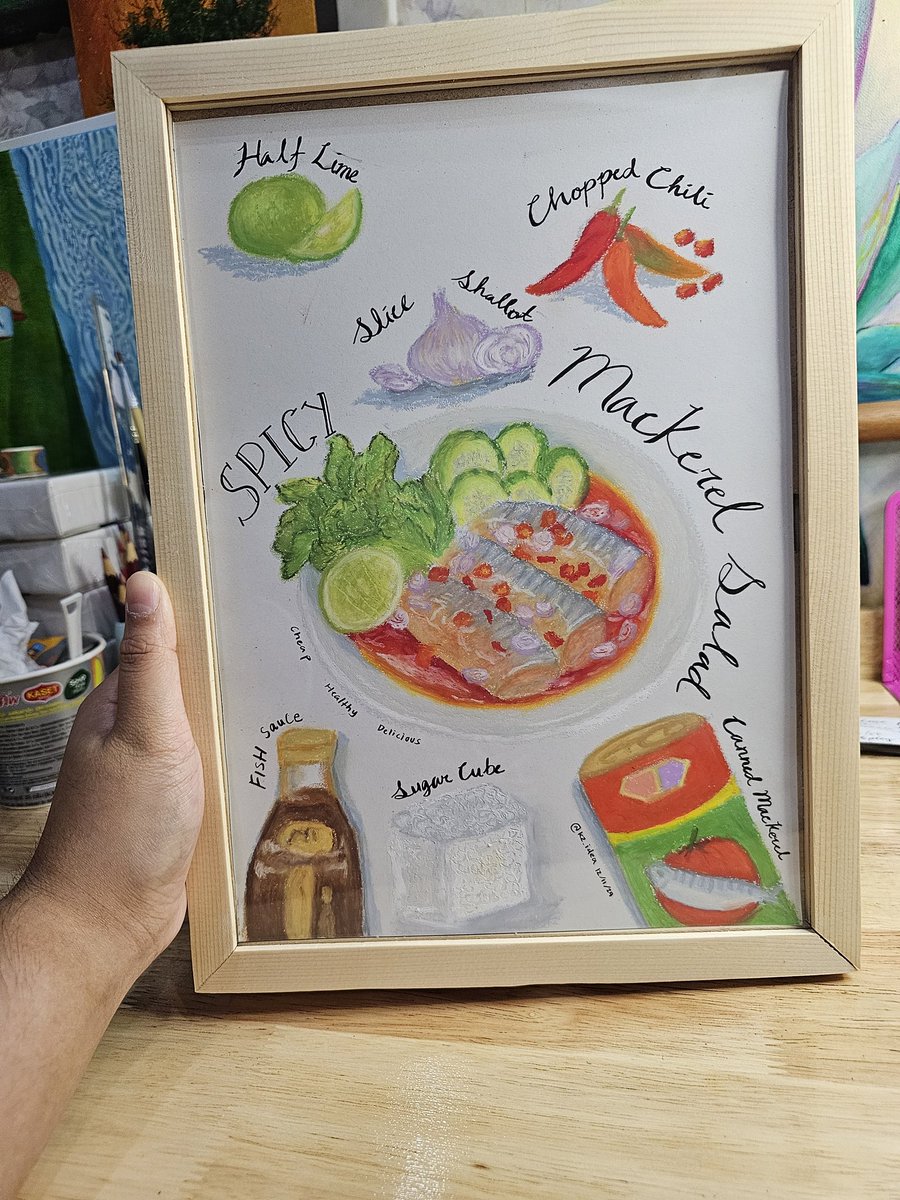 Half Lime
Chopped Chili
Slice Shallot
SPICY
Mackerel Salad
Cheap
Healthy
Delicious
FISH Sauce
Sugar Cube
Canned Mackerel
@kz.idea 12/11/24
KASET